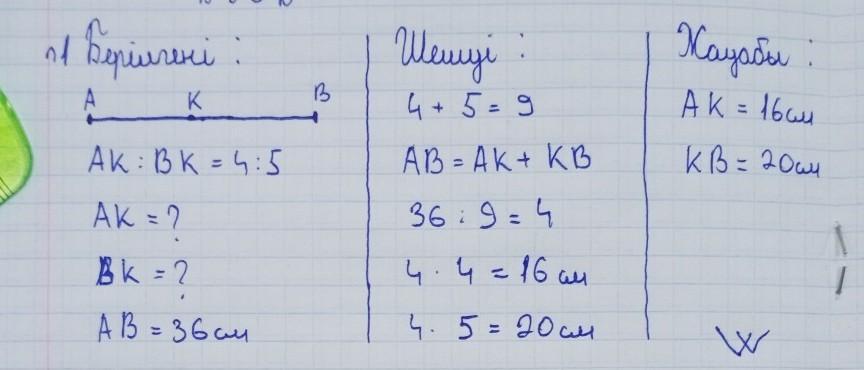 №1 Берілгені :
A K B
AK : BK = 4 : 5
AK = ?
BK = ?
AB = 36 см
Шешуі :
4 + 5 = 9
AB = AK + KB
36 : 9 = 4
4 · 4 = 16 см
4 · 5 = 20 см
Жауабы :
AK = 16 см
KB = 20 см